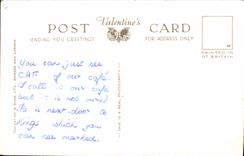 Valentine's
POST CARD
SENDING YOU GREETINGS
FOR ADDRESS ONLY
PRINTED IN
GT. BRITAIN
You can just see
CAF of our café.
I call is our café
but is is not mine)
It is next door to
Kings which you
can see marked.